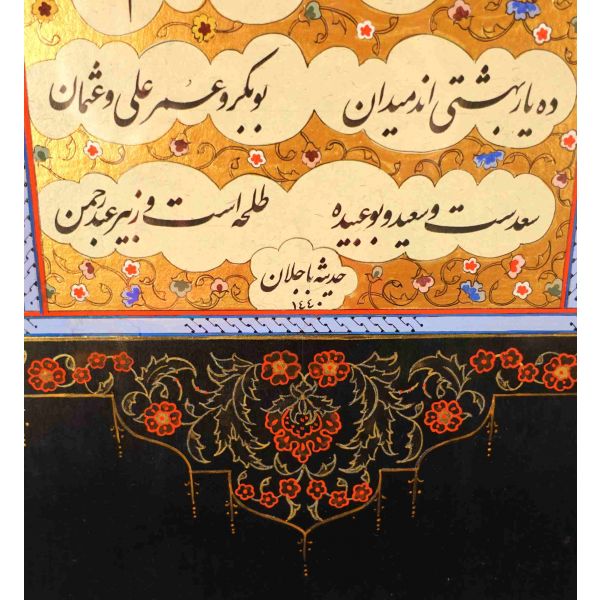 ده یار بهشتی اند میدان بوبکر و عمر علی و عثمان
سعدست و سعید و بوعبیده طلحه است و زبیر عبدرحمن
حدیثه باجلان
١٤٤٠